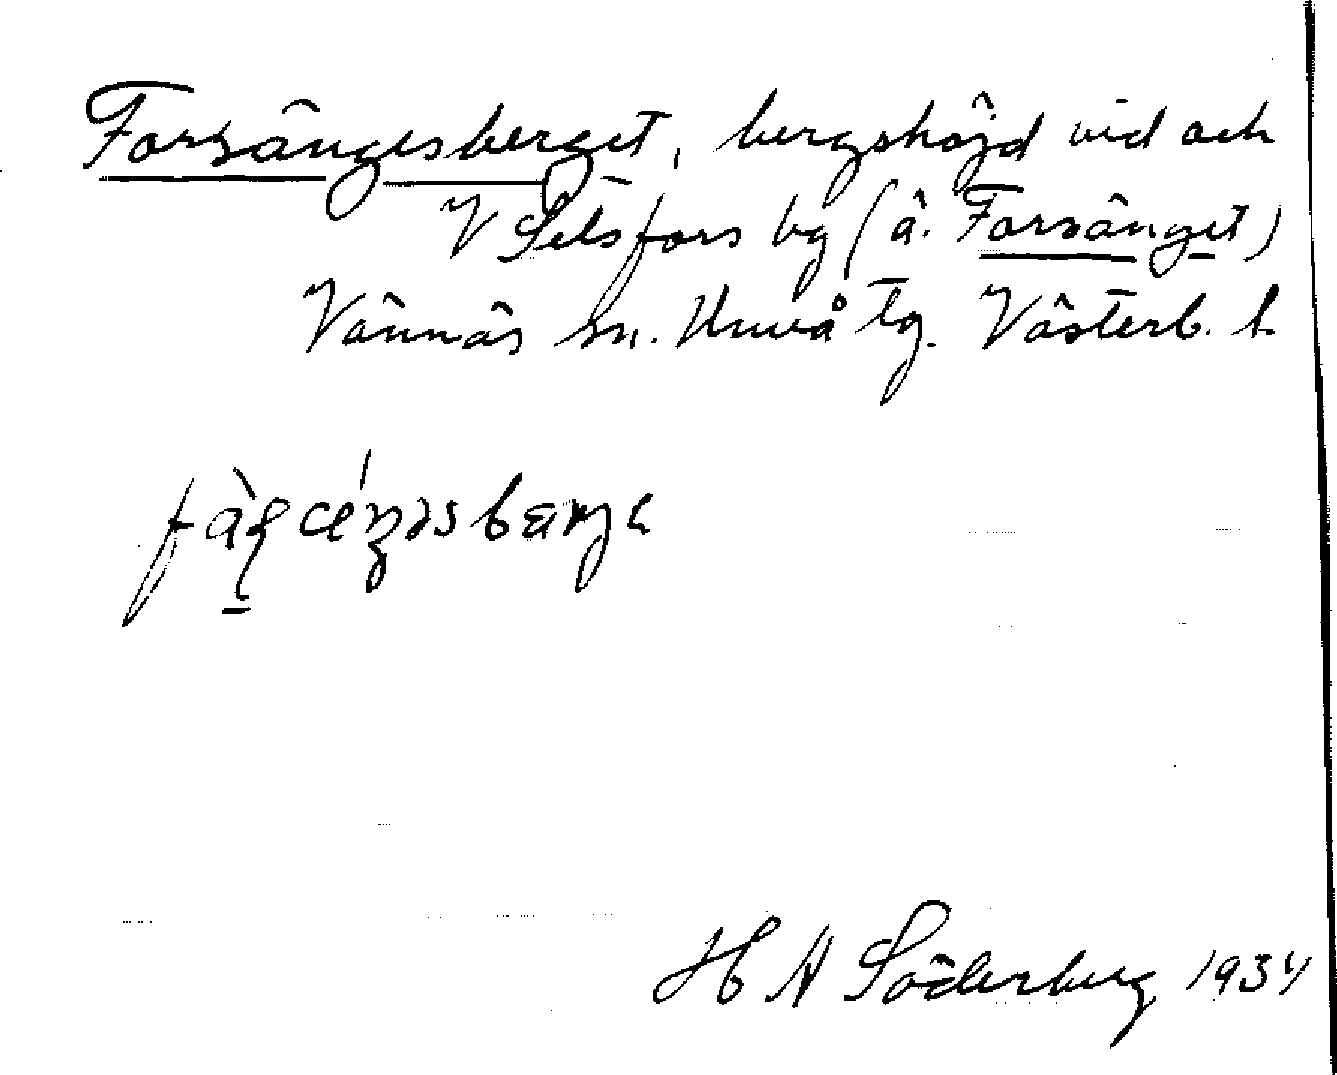 Forsängesberget, bergshöjd vid och
V Selsfors bg (ä. Forsänget)
Vännäs sn. Umeå tg. Västerb. l.
H A Söderberg 1934